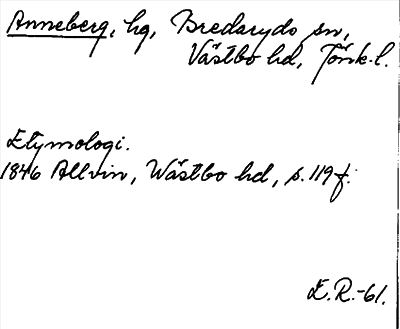 Anneberg, hg, Bredaryds sn,
Västbo hd, Jönk. l.
Etymologi.
1846 Allvin, Wästbo hd, s. 119 f.
E.R.-61.